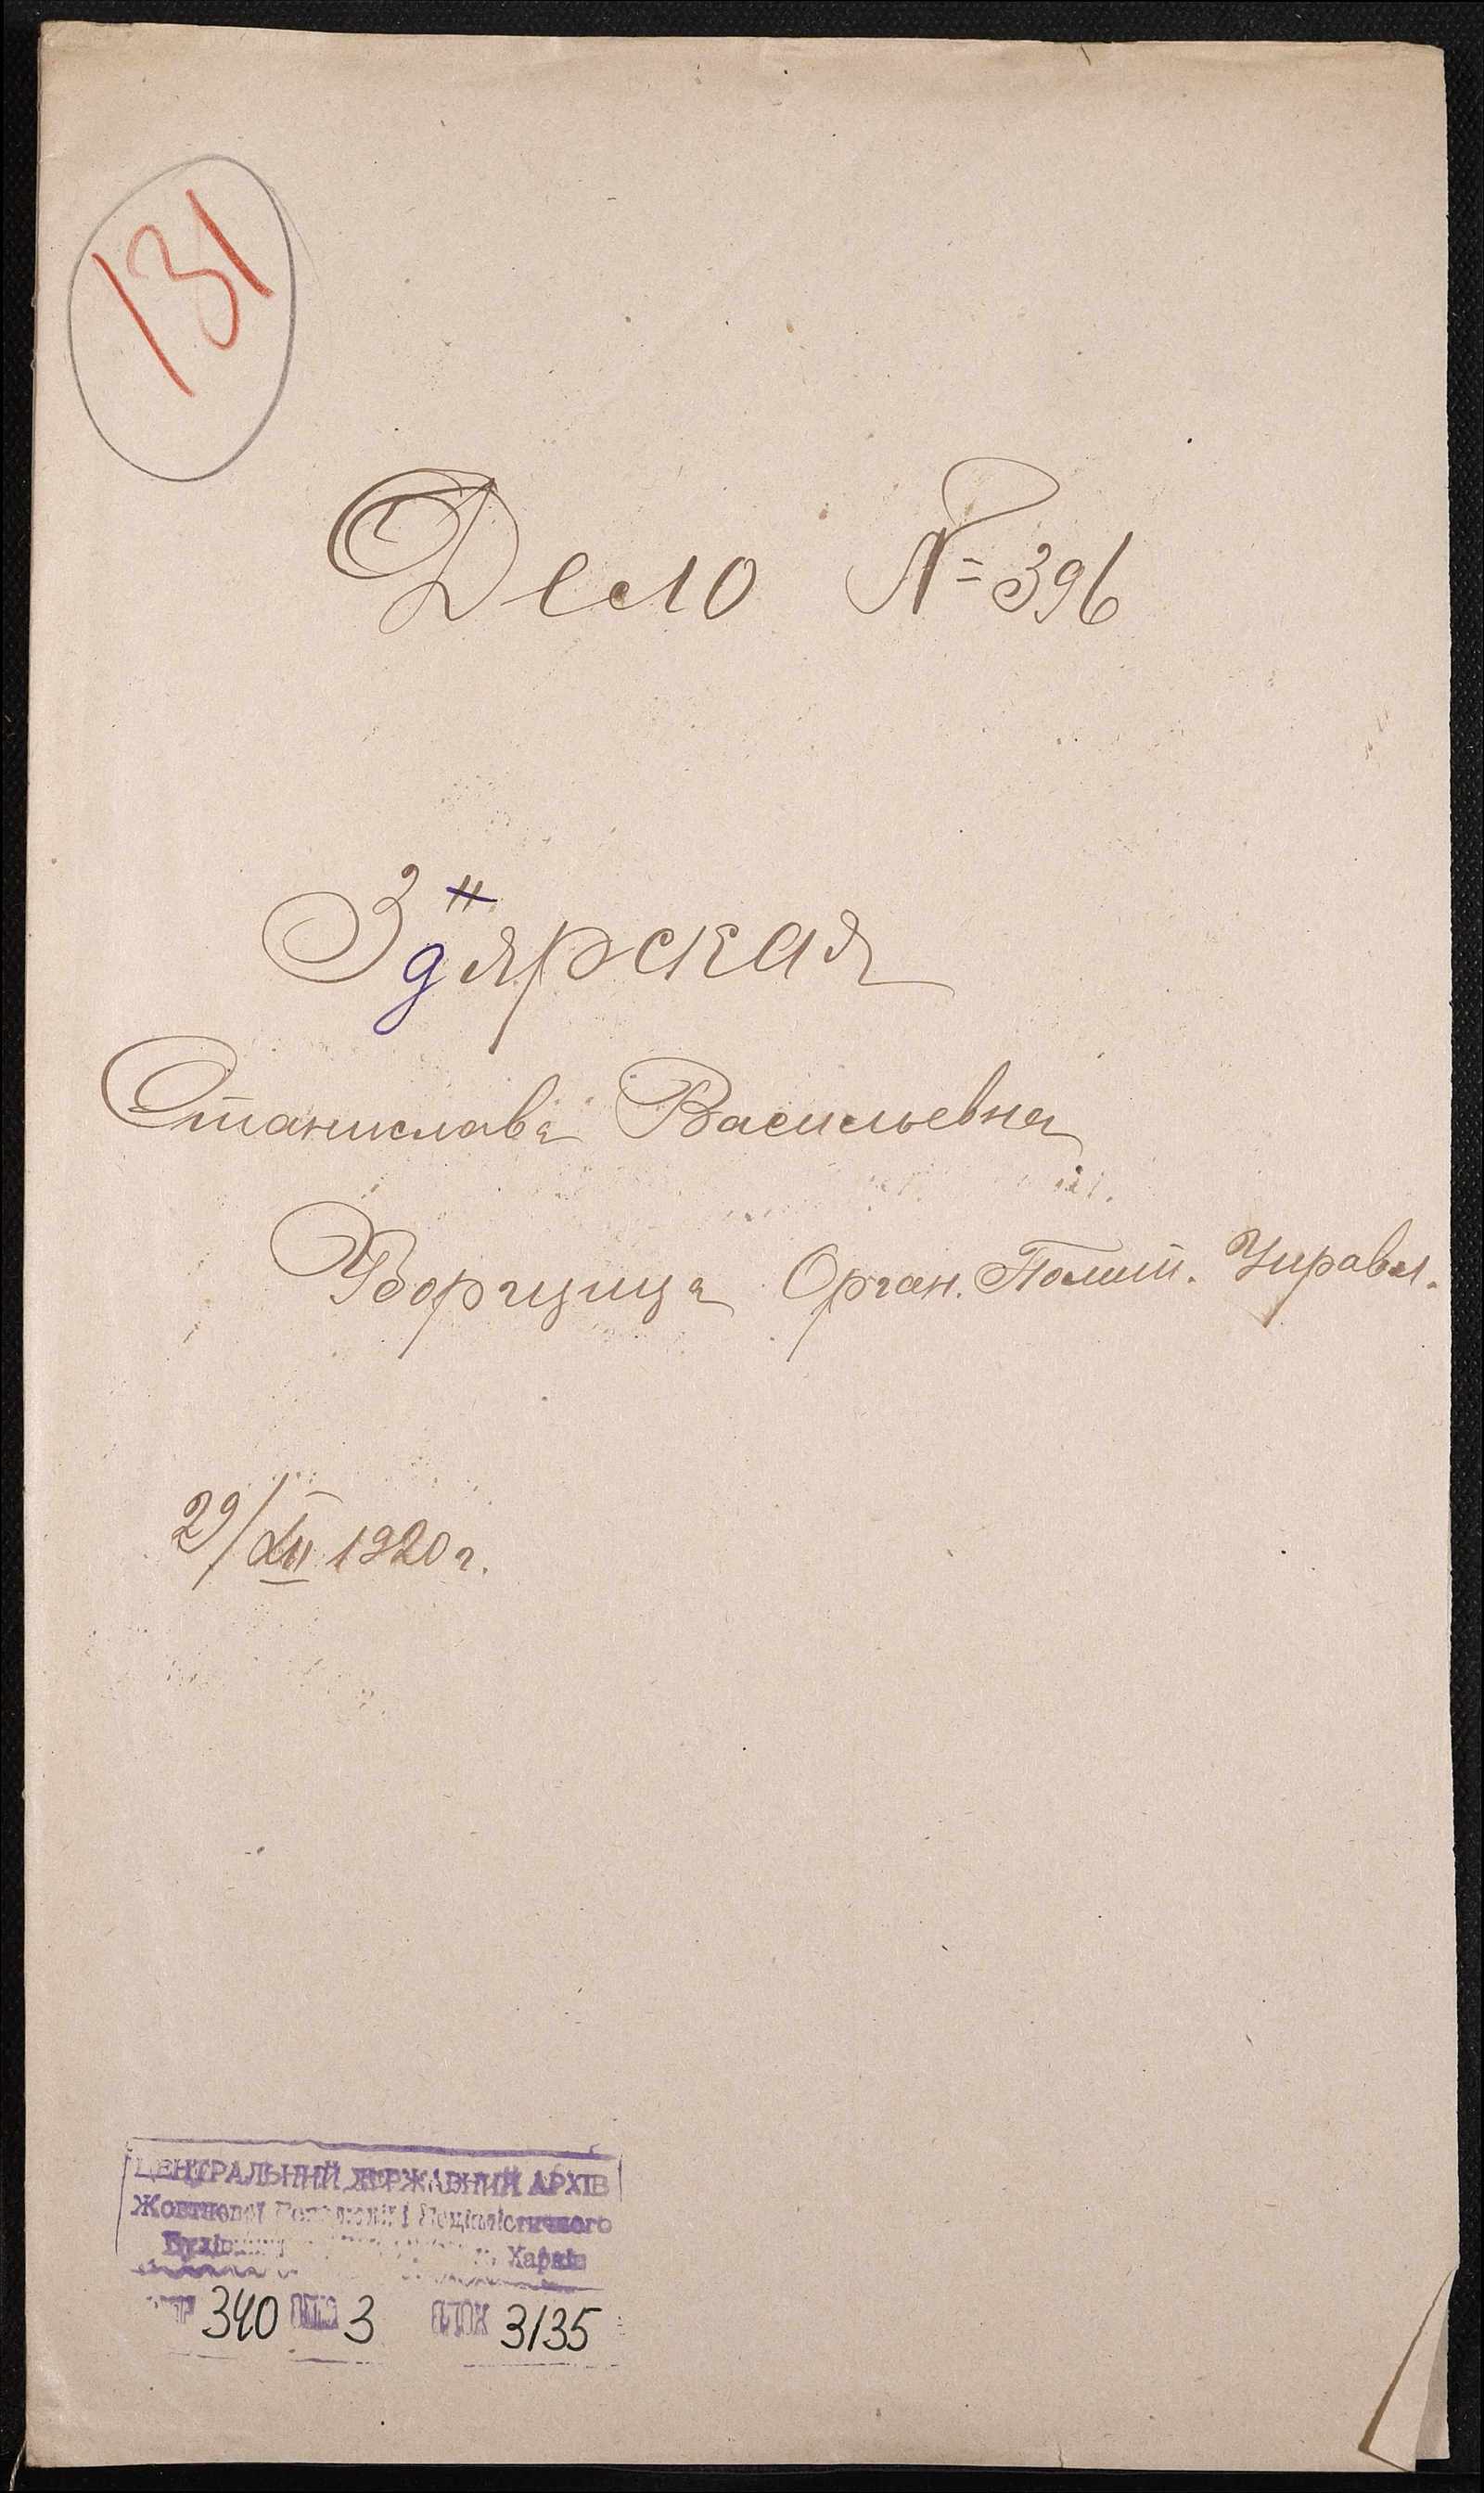 131
Дело № 396
Здярская
Станислава Васильевна
Борщица Орган. Полит. Управл.
29/XII 1920 г.
ЦЕНТРАЛЬНИЙ ДЕРЖАВНИЙ АРХІВ
Жовтневої Революції і Соціалістичного
Харків
340 3 3135